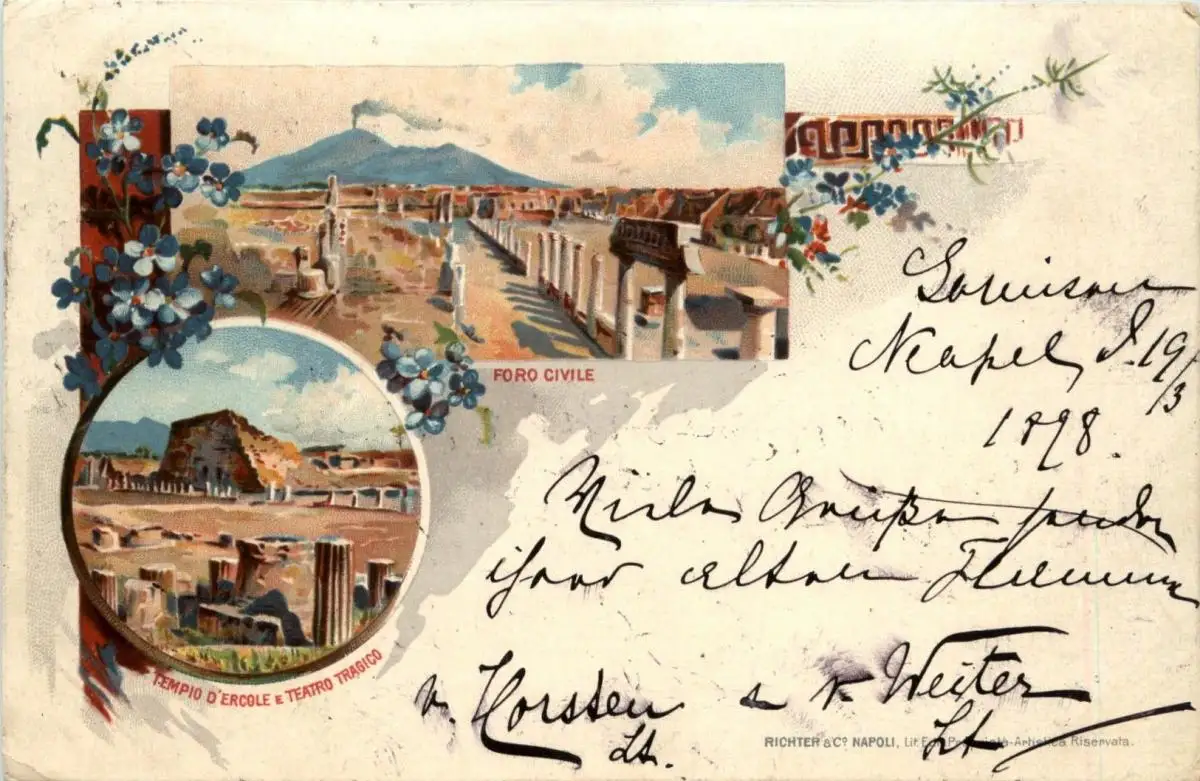 FORO CIVILE
Neapel, d. 19/3
1898.
Viele Grüße senden
ihrer alten
TEMPIO D'ERCOLE E TEATRO TRAGICO
v. Horsten & v. Weiter
Lt. Lt
RICHTER & Cº NAPOLI, Lit. Ed. Proprietà-Artistica Riservata.